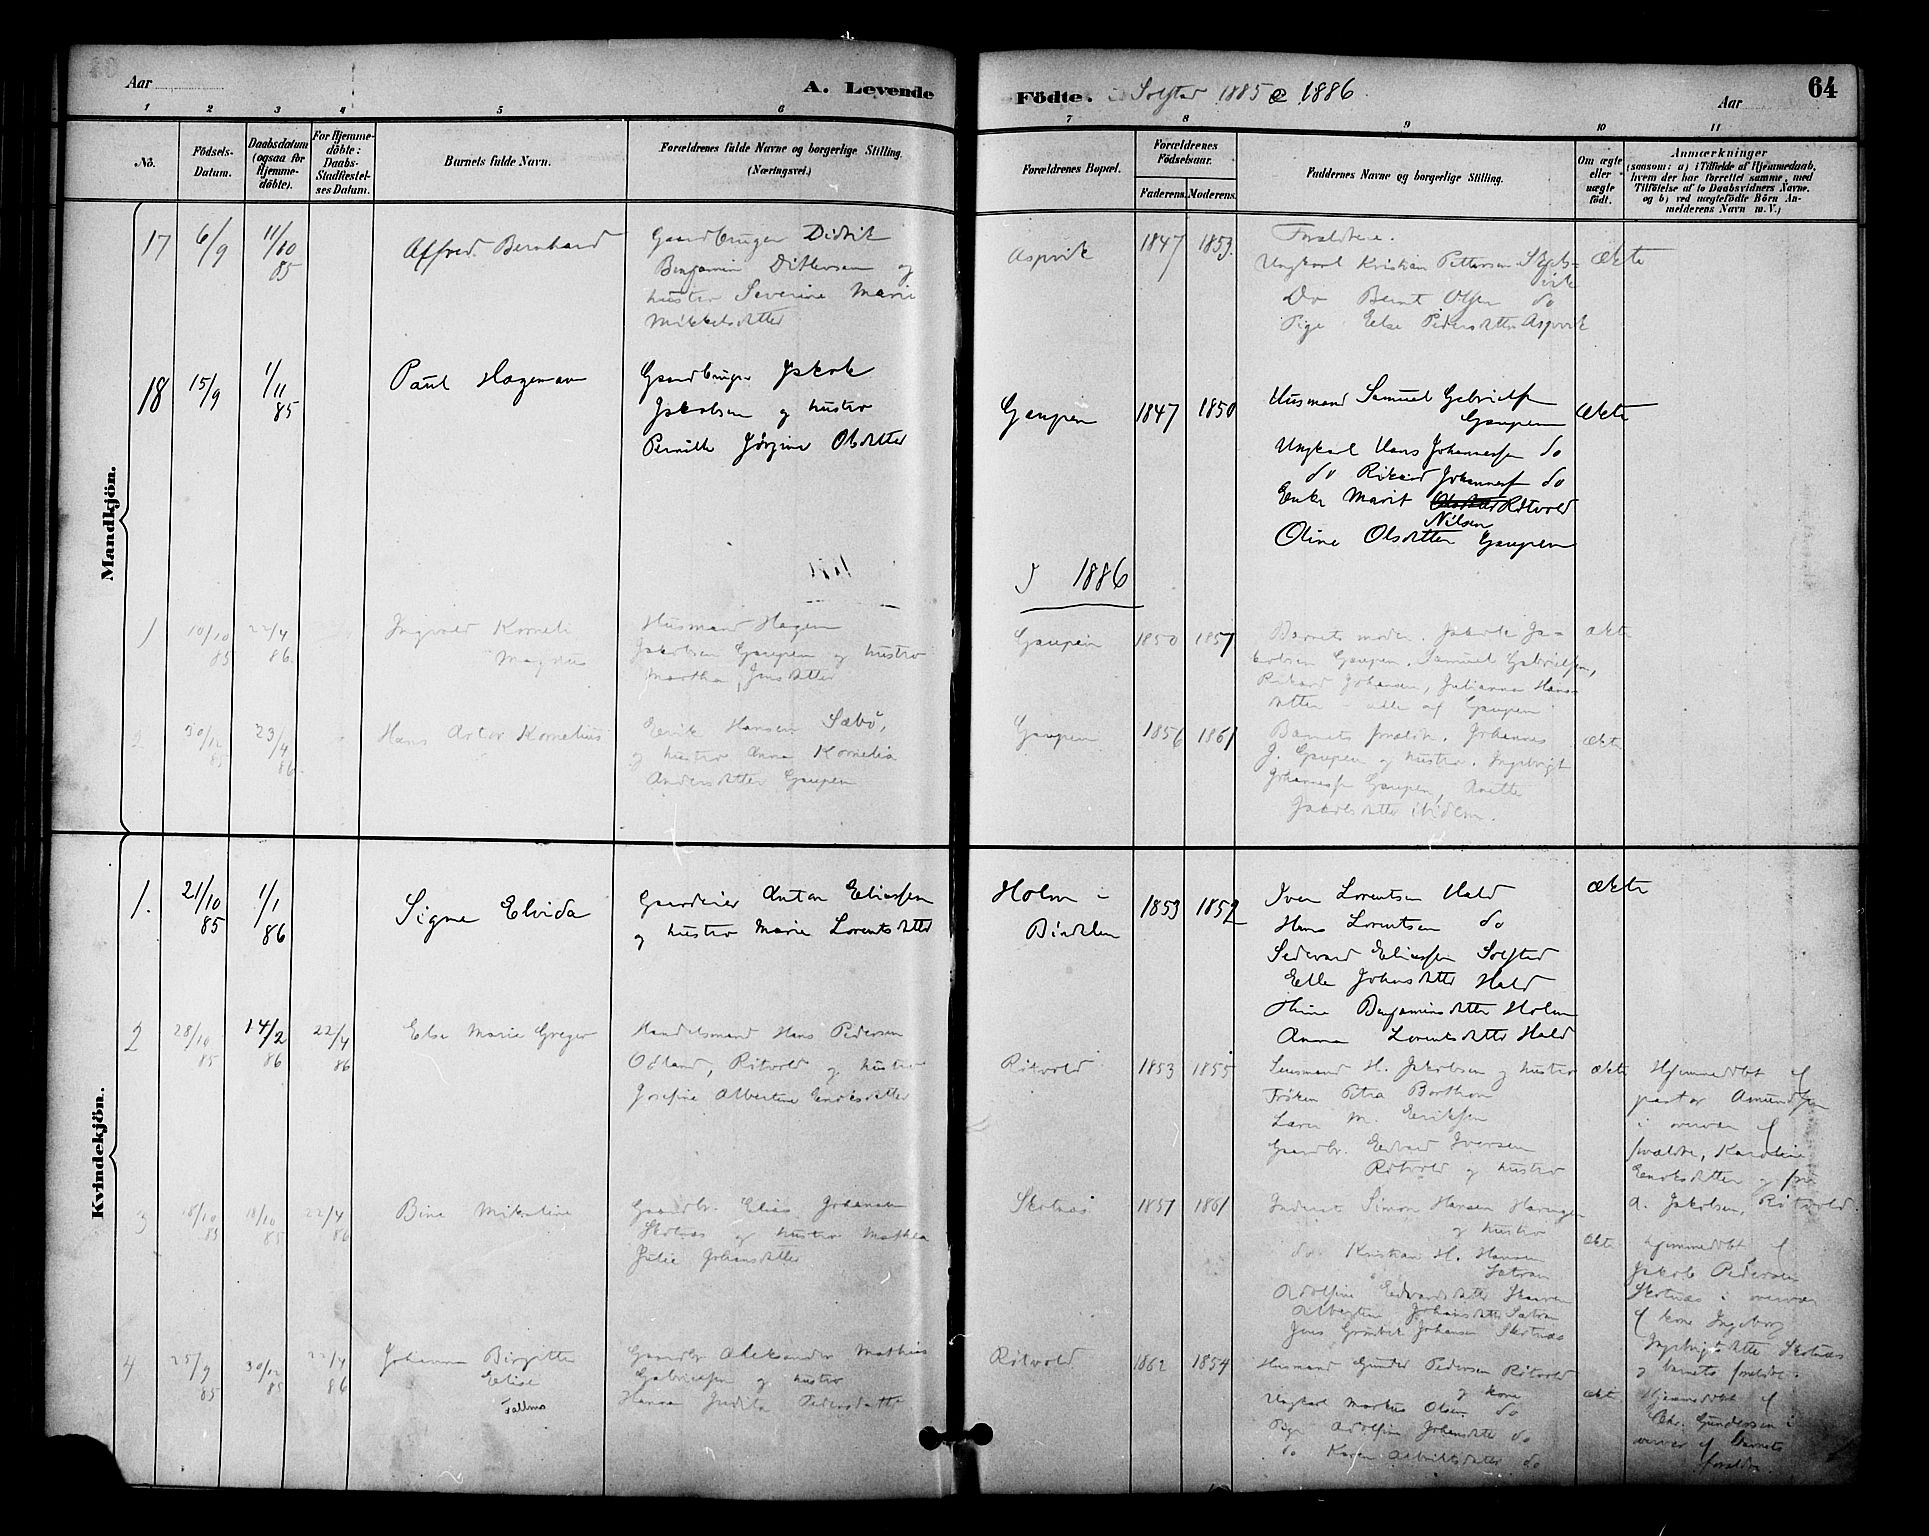 Aar
A. Levende
Födte. Solstad 1885 & 1886
Aar
64
1 2 3 4 5 6 7 8 9 10 11
No.
Födsels-
Datum.
Daabsdatum
(ogsaa for
Hjemme-
döbte).
For Hjemme-
döbte:
Daabs-
Stadfæstel-
ses Datum.
Barnets fulde Navn.
Forældrenes fulde Navne og borgerlige Stilling.
(Næringsvei.)
Forældrenes Bopæl.
Forældrenes
Födselsaar.
Faderens. Moderens.
Faddernes Navne og borgerlige Stilling.
Om ægte
eller
uægte
födt.
Anmærkninger
(saasom: a) i Tilfælde af Hjemmedaab,
hvem der har forrettet samme, med
Tilföielse af to Daabsvidners Navne.
og b) ved uægtefödte Börn An-
melderens Navn m. V.)
Mandkjön.
17 6/9 11/10 85
Alfred Bernhard
Gaardbruger Didrik
Benjamin Ditlevsen og
hustro Severine Marie
Mikkelsdatter
Aspvik
1847 1853.
Forældrene.
Ungkarl Kristian Pettersen
Do Bernt Olsen do
Pige Else Pedersdatter Aspvik
Ækte
18 15/9 1/11 85
Paul Hageman
Gaardbruger Jakob
Jakobsen og hustro
Pernille Jørgine Olsdatter
Gaupen
1847 1850
Husmand Samuel Gabrielsen
Gaupen
Ungkarl Hans Johannessen do
do Rikard Johannesen do
Enke Marit Nilsen Røtvold
Oline Olsdatter Gaupen
Ækte
I 1886
1 10/10 85 22/4 86
Ingvald Korneli
Magnus
Husmand Hagen
Jakobsen Gaupen og hustro
Martha Jensdatter
Gaupen
1850 1857
Barnets moder. Jakob Ja-
kobsen Gaupen. Samuel Gabrielsen,
Rikard Johansen, Julianna Hans-
datter - alle af Gaupen
ækte
2 30/12 85 23/4 86
Hans Artor Kornelius
Erik Hansen Sæbö,
og hustro Anna Kornelia
Andersdatter Gaupen
Gaupen
1856 1861
Barnets forældre. Johannes
J. Gaupen og hustro. Ingebrigt
Johannessen Gaupen, Anette
Jakobsdatter ibidem.
ækte
Kvindekjön.
1. 21/10 85 1/1 86
Signe Elvida
Gaardeier Anton Eliassen
og hustro Marie Lorentsdatter
Holm i
Bindalen
1853 1852
Iver Lorentsen Hald
Hans Lorentsen do
Sedevard Eliassen Solstad
Elle Johnsdatter Hald
Benjaminsdatter Holm
Anna Lorentsdatter Hald
Ækte
2 28/10 85 14/2 86 22/4 86
Else Marie Greger
Handelsmand Hans Pedersen
Odland, Røtvold og hustro
Josefine Albertine Enoksdatter
Røtvold
1853 1855
Lensmand H. Jakobsen og hustro
Frøken Petra Borthom
Lærer M. Eriksen
Gaardbr. Edvard Iversen
Røtvold og hustro
ækte
Hjemmedøbt af
pastor Amundsen
i overvær af
forældre, Karoline
Enoksdatter og fru
A. Jakobsen, Røtvold.
3 18/10 85 18/10 85 22/4 86
Bine Mikaline
Gaardbr. Elias Johansen
Skotnæs og hustro Mathea
Julie Johansdatter
Skotnæs
1857 1861
Inderst Simon Hansen Haringen
og hustro
do Kristian H. Hansen
Sætran
Adolfine Edvardsdatter
Albertine Johansdatter Sætran
Jens Grønbek Johansen Skotnæs
ækte
hjemmedøbt af
Jakob Pedersen
Skotnæs i overvær
af kone Ingeborg
Ingebrigtsdatter Skotnæs
og barnets forældre.
4 25/9 85 30/12 85 22/4 86
Johanna Birgitte
Elise
Gaardbr Aleksander Mathias
Gabrielsen og hustro
Hanna Judita Pedersdatter
Røtvold
1862 1854
Husmand Gunder Pedersen Røtvold
og kone
Ungkarl Markus Olsen do
Pige Adolfine Johansdatter do
do Karen Albriktsdatter do
ækte
Hjemmedøbt af
Gundersen i
overvær af barnets
forældre.